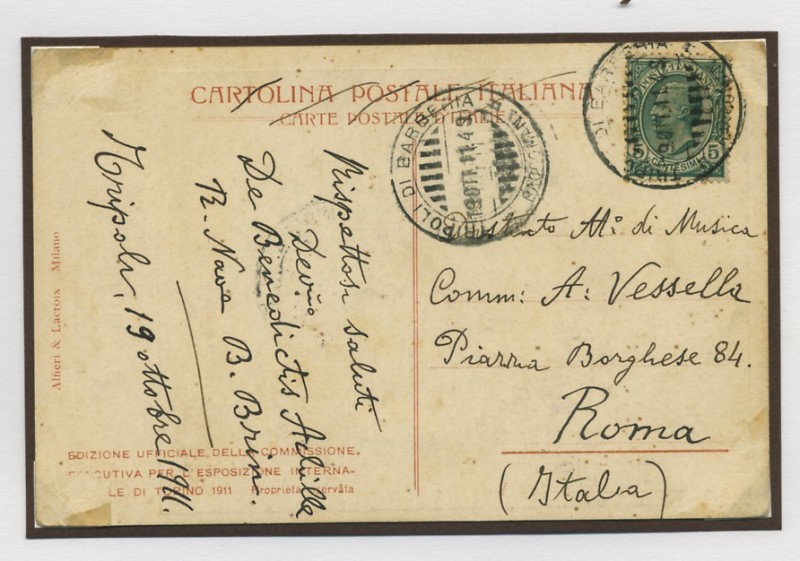 CARTOLINA POSTALE ITALIANA
CARTE POSTALE D'ITALIE
TRIPOLI DI BARBERIA
5 CENTESIMI 5
Tripoli, 19 ottobre 911.
Rispettosi saluti
Dev.º
De Benedictis Achille
R. Nave B. Brin.
Illustrato Mº di Musica
Comm: A: Vessella
Piazza Borghese 84.
Roma
(Italia)
Alfieri & Lacroix Milano
EDIZIONE UFFICIALE DELLA COMMISSIONE
ESECUTIVA PER L'ESPOSIZIONE INTERNA-
LE DI TORINO 1911 Proprietà riservata